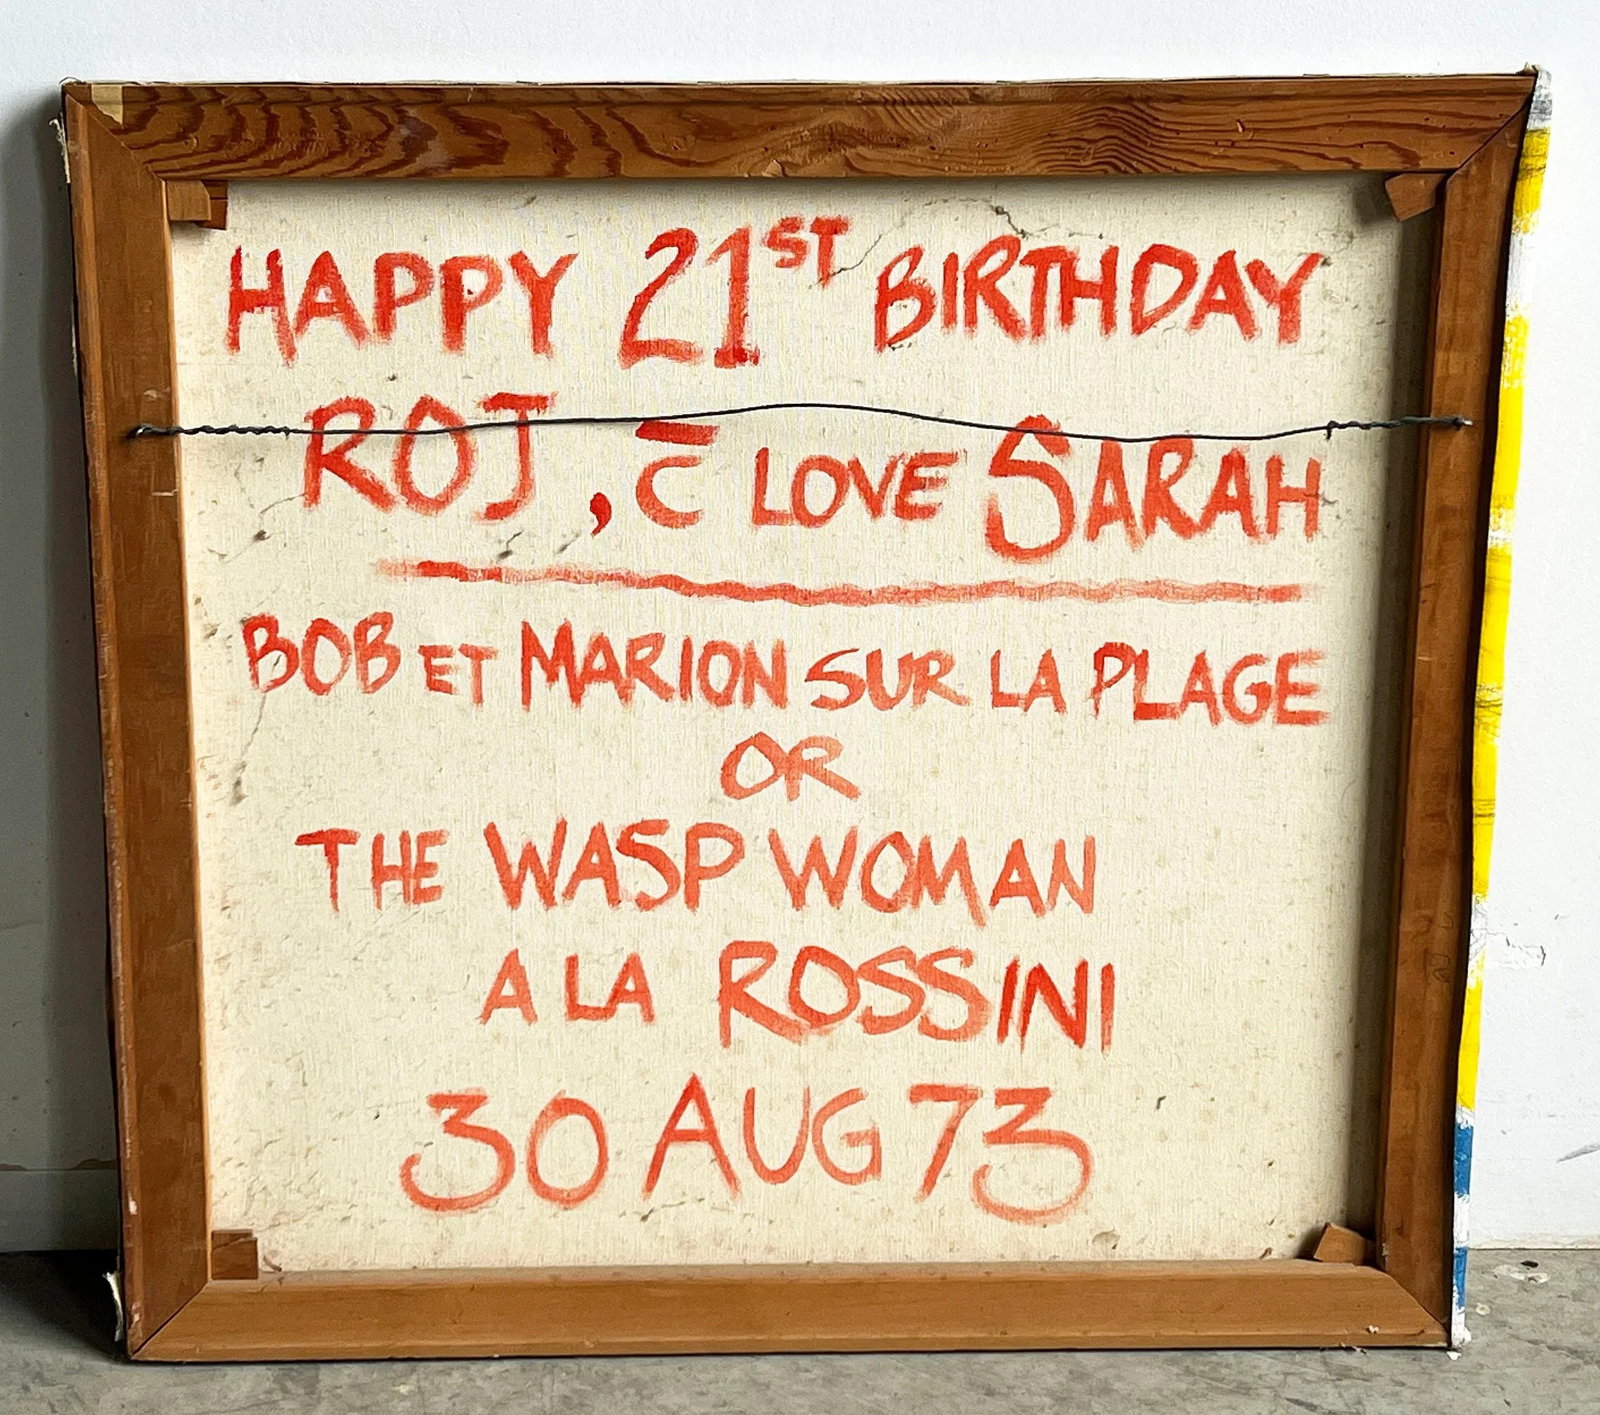 HAPPY 21ST BIRTHDAY
ROJ, c̅ LOVE SARAH
BOB ET MARION SUR LA PLAGE
OR
THE WASP WOMAN
A LA ROSSINI
30 AUG 73